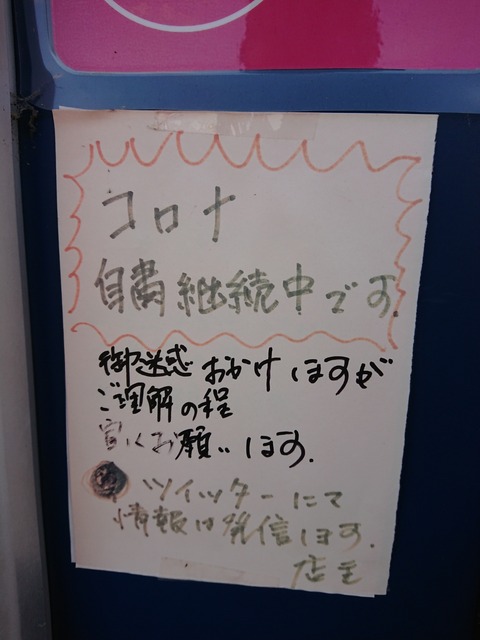 コロナ
自粛継続中です.
御迷惑おかけしますが
ご理解の程
宜しくお願いします.
ツイッターにて
情報は発信します.
店主